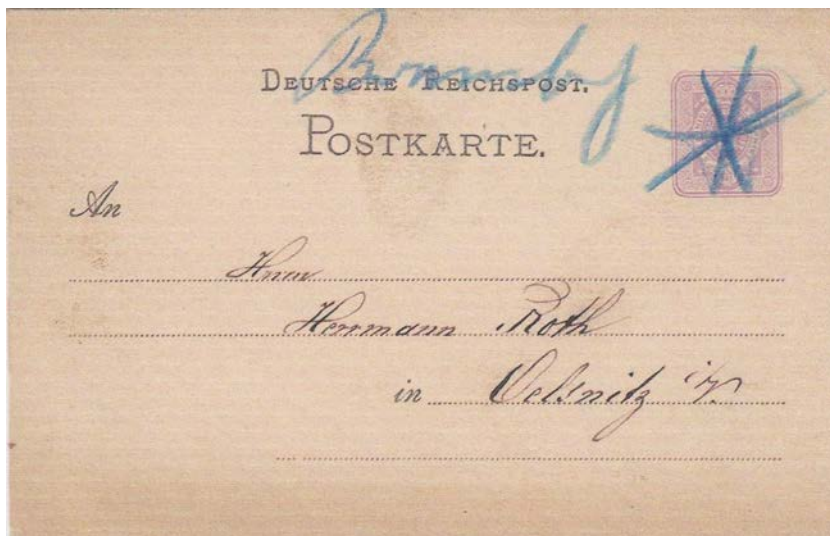 DEUTSCHE REICHSPOST.
POSTKARTE.
An
Herrn
Herrmann Roth
in Oelsnitz i/V.